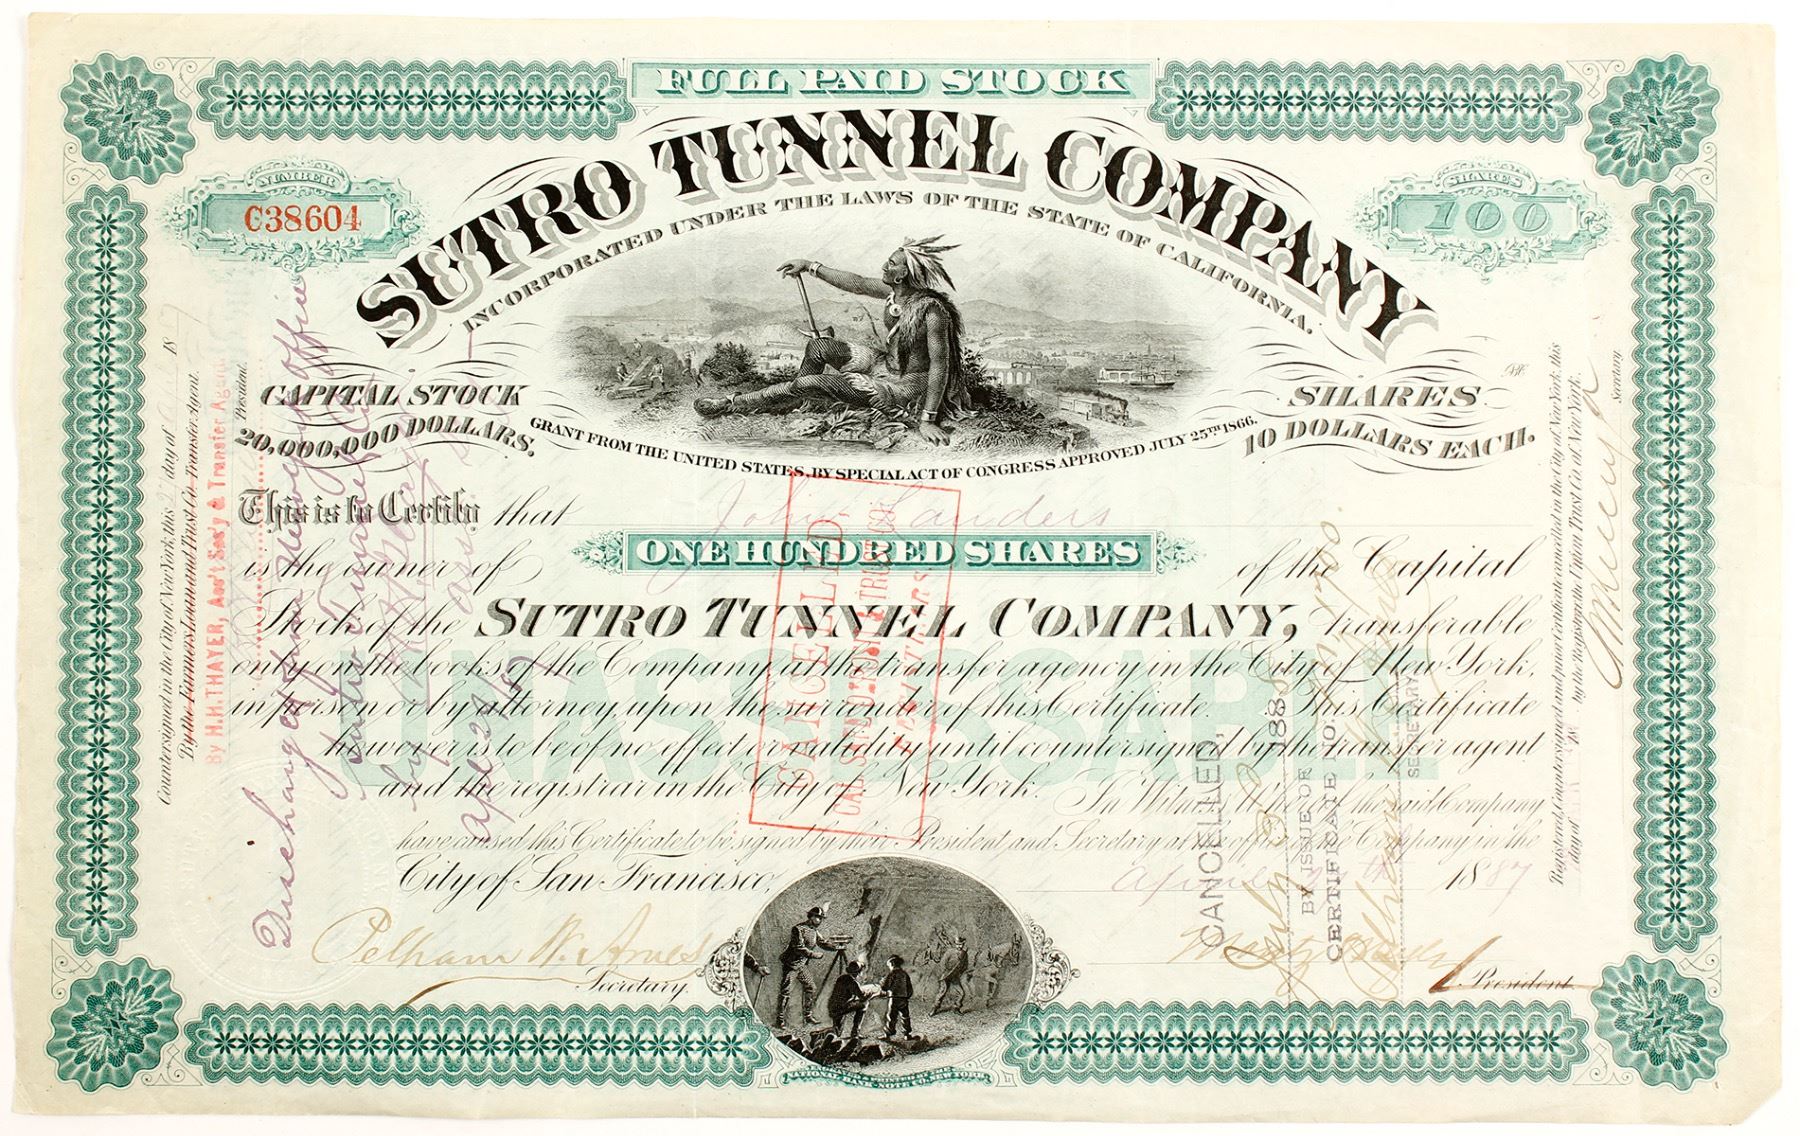 FULL PAID STOCK
NUMBER
C38604
SHARES
100
SUTRO TUNNEL COMPANY
INCORPORATED UNDER THE LAWS OF THE STATE OF CALIFORNIA.
CAPITAL STOCK
20,000,000 DOLLARS.
SHARES
10 DOLLARS EACH.
GRANT FROM THE UNITED STATES, BY SPECIAL ACT OF CONGRESS APPROVED JULY 25TH 1866.
This is to Certify that John Landers
is the owner of ONE HUNDRED SHARES of the Capital
Stock of the SUTRO TUNNEL COMPANY, transferable
only on the books of the Company at the transfer agency in the City of New York,
in person or by attorney, upon the surrender of this Certificate. This Certificate
however is to be of no effect or validity until countersigned by the transfer agent
and the registrar in the City of New York. In Witness Whereof the said Company
have caused this Certificate to be signed by their President and Secretary at the office of the Company in the
City of San Francisco, April 1887
UNASSESSABLE
Pelham W. Ames
Secretary.
President
NATIONAL BANK NOTE CO. NEW YORK
Countersigned in the City of New York, this day of 18
By the Farmers Loan and Trust Co. Transfer Agent.
President.
By H.H. THAYER, Ass't Sec'y & Transfer Agent
Discharged from Mercy's Office
Sutro Tunnel Co.
by
CANCELLED.
CAL. SAFE DEPOSIT & TRUST CO.
CANCELLED, July 1888
BY ISSUE OF
CERTIFICATE NO.
SECRETARY
Registered, Countersigned and former Certificate cancelled in the City of New York, this
day of 18 by the Registrar, the Union Trust Co. of New York.
Secretary.